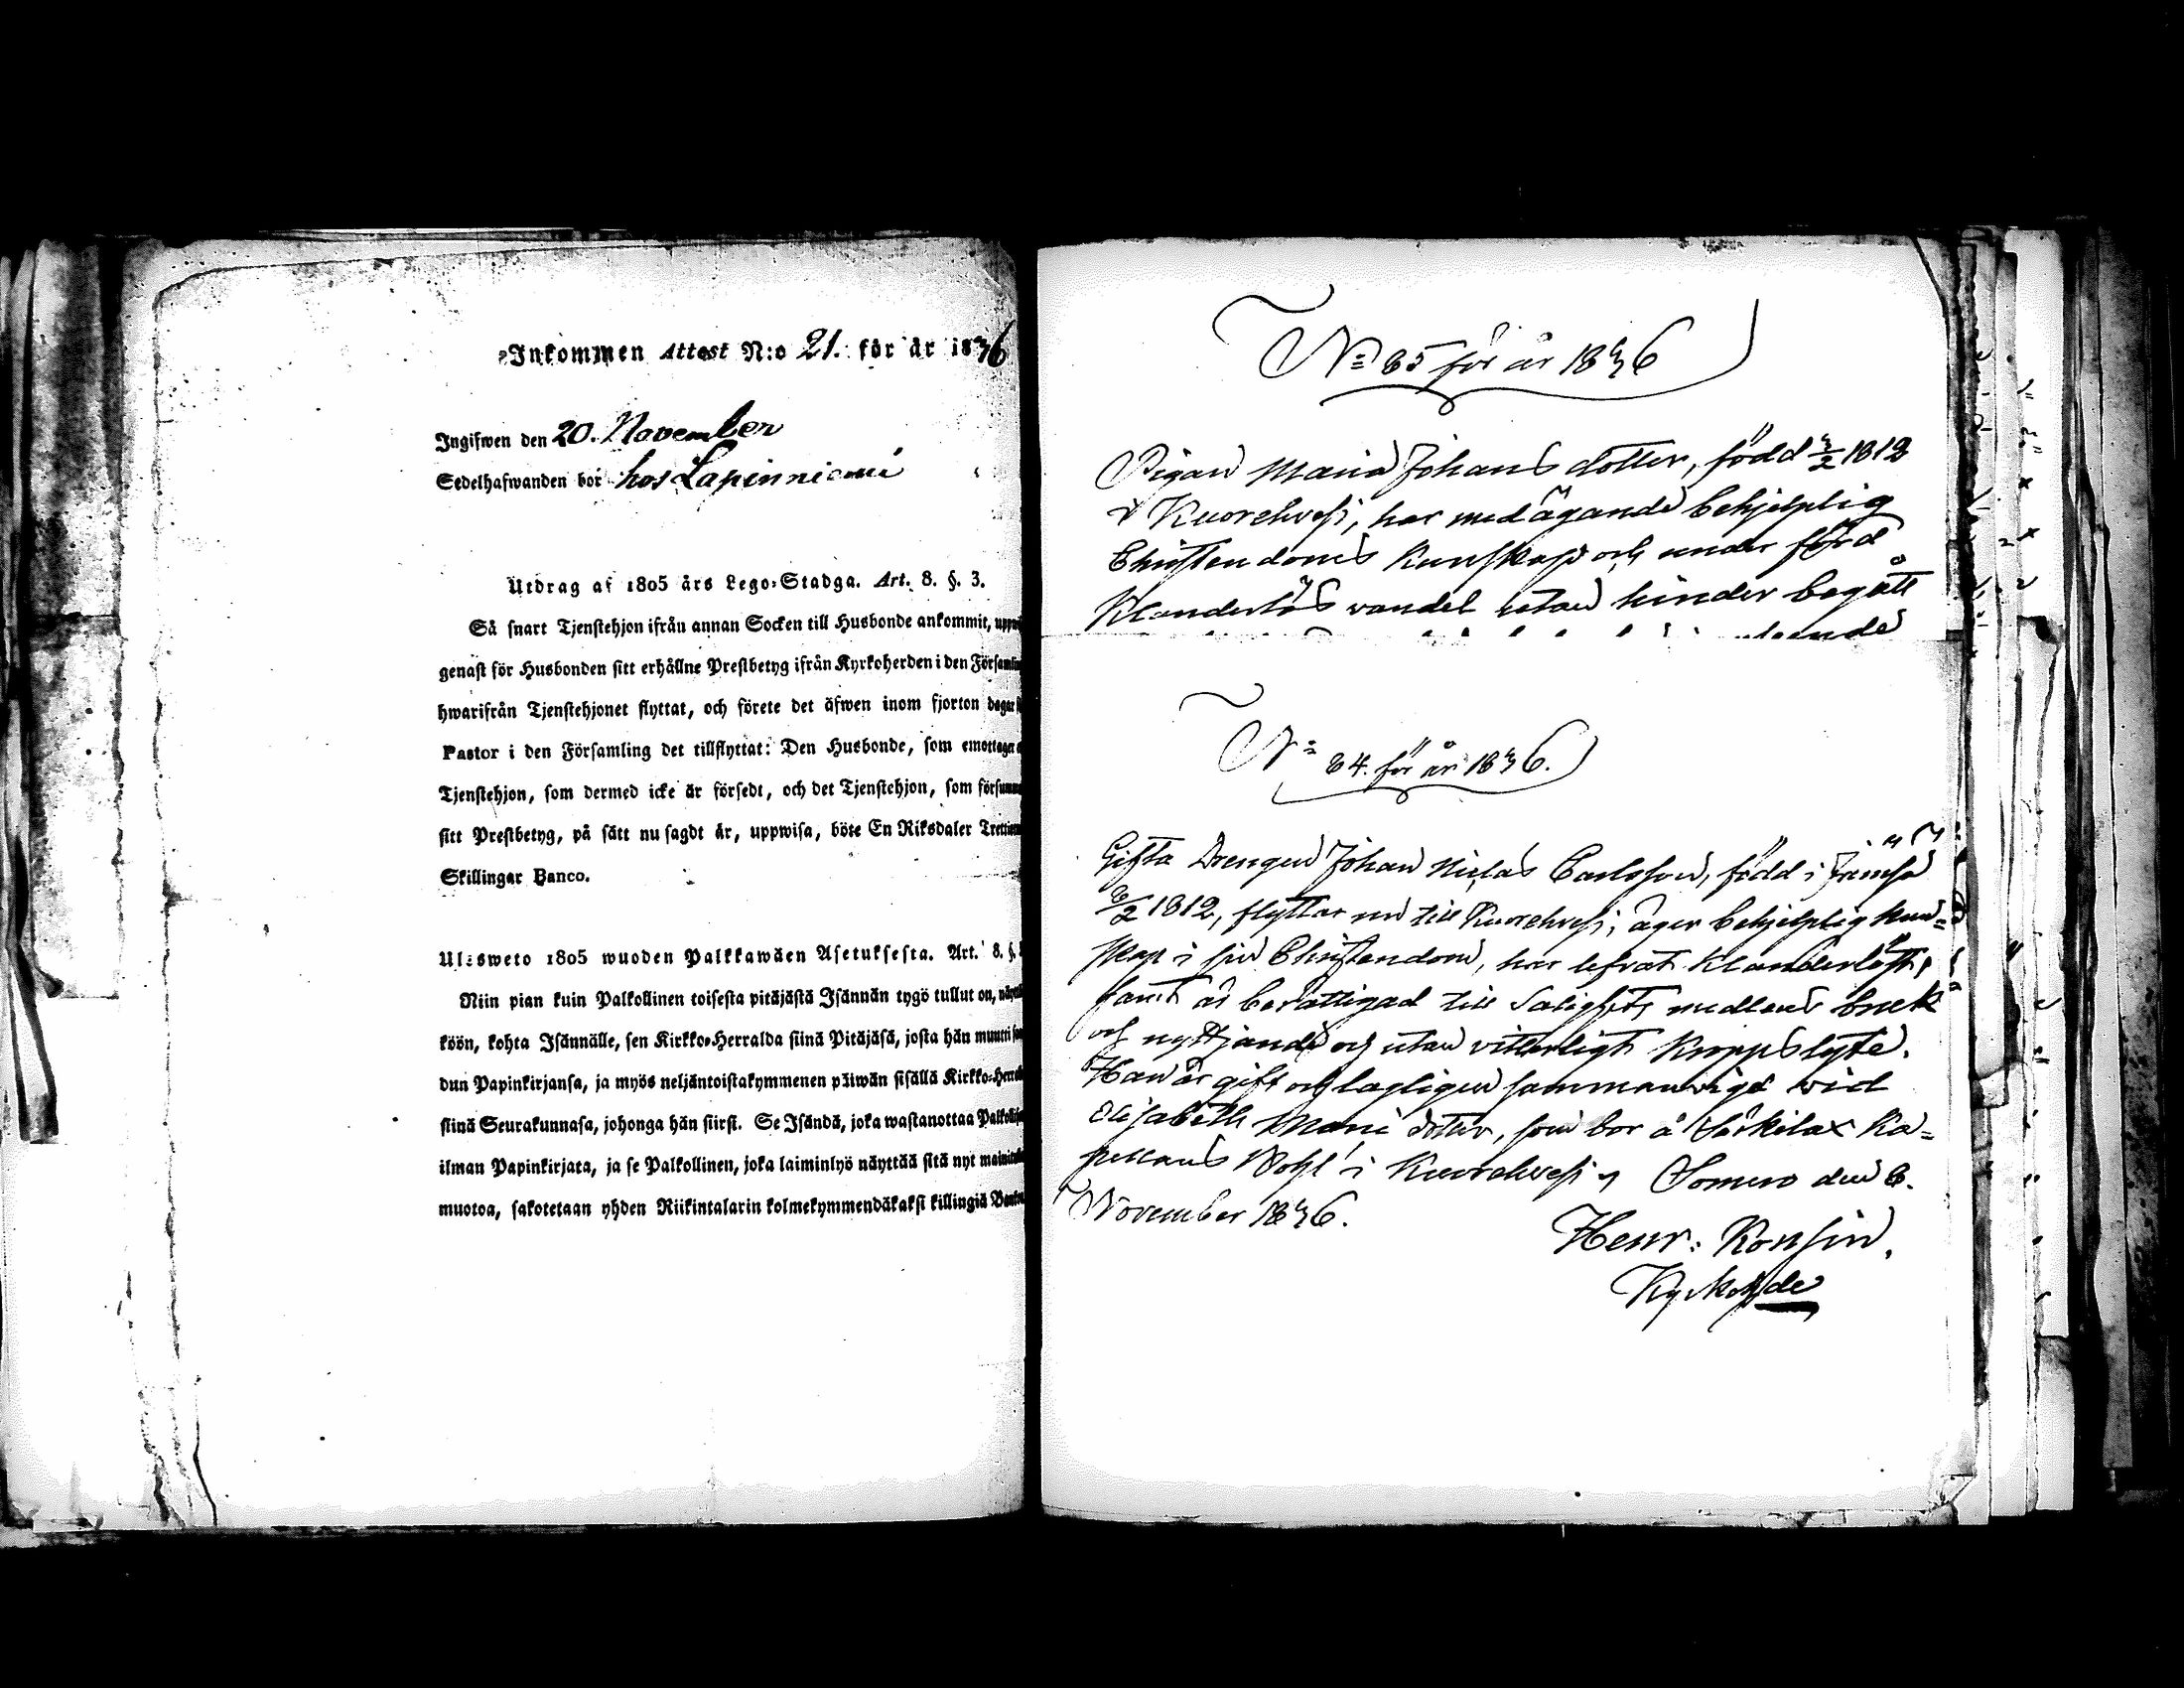 Inkommen Attest N:o 21. för år 1836
Ingifwen den 20. November
Sedelhafwanden bor hos Lapinniemi
Utdrag af 1805 års Lego-Stadga. Art. 8. §. 3.
Så snart Tjenstehjon ifrån annan Socken till Husbonde ankommit,
genast för Husbonden sitt erhållne Prestbetyg ifrån Kyrkoherden i den
hwarifrån Tjenstehjonet flyttat, och förete det äfwen inom fjorton dagar
Pastor i den Församling det tillflyttat: Den Husbonde, som emottager
Tjenstehjon, som dermed icke är försedt, och det Tjenstehjon, som
sitt Prestbetyg, på sätt nu sagdt är, uppwisa, böte En Riksdaler
Skillingar Banco.
Ulosweto 1805 wuoden Palkkawäen Asetuksesta. Art. 8. §.
Niin pian kuin Palkollinen toisesta pitäjästä Isännän tygö tullut on,
köön, kohta Isännälle, sen Kirkko-Herralda siinä Pitäjäsä, josta hän muutti
dun Papinkirjansa, ja myös neljäntoistakymmenen päiwän sisällä
siinä Seurakunnasa, johonga hän siirsi. Se Isändä, joka wastanottaa
ilman Papinkirjata, ja se Palkollinen, joka laiminlyö näyttää sitä nyt
muotoa, sakotetaan yhden Riikintalarin kolmekymmendäkaksi killingiä
N:o 85 för år 1836
Pigan Maria Johans dotter, född 3/2 1812
i Kuorehvesi, har med ägande behjelplig
Christendoms Kunskap och under förd
Klanderlös vandel utan hinder begått
N:o 84. för år 1836.
Gifta Drengen Johan Niclas Carlsson, född i Jämsä
8/2 1812, flyttar nu till Kuorehvesi, äger behjelplig Kun=
skap i sin Christendom, har lefvat Klanderlöst,
samt är berättigad till Salighets medlens bruk
och nyttjande och utan vitterligt Kropps lyte.
Han är gift och lagligen sammanvigd wid
Elisabeth Maria dotter, som bor å Särkilax Ka=
pellans Bohl i Kuorehvesi, Somero den 8.
November 1836.
Henr: Konsin.